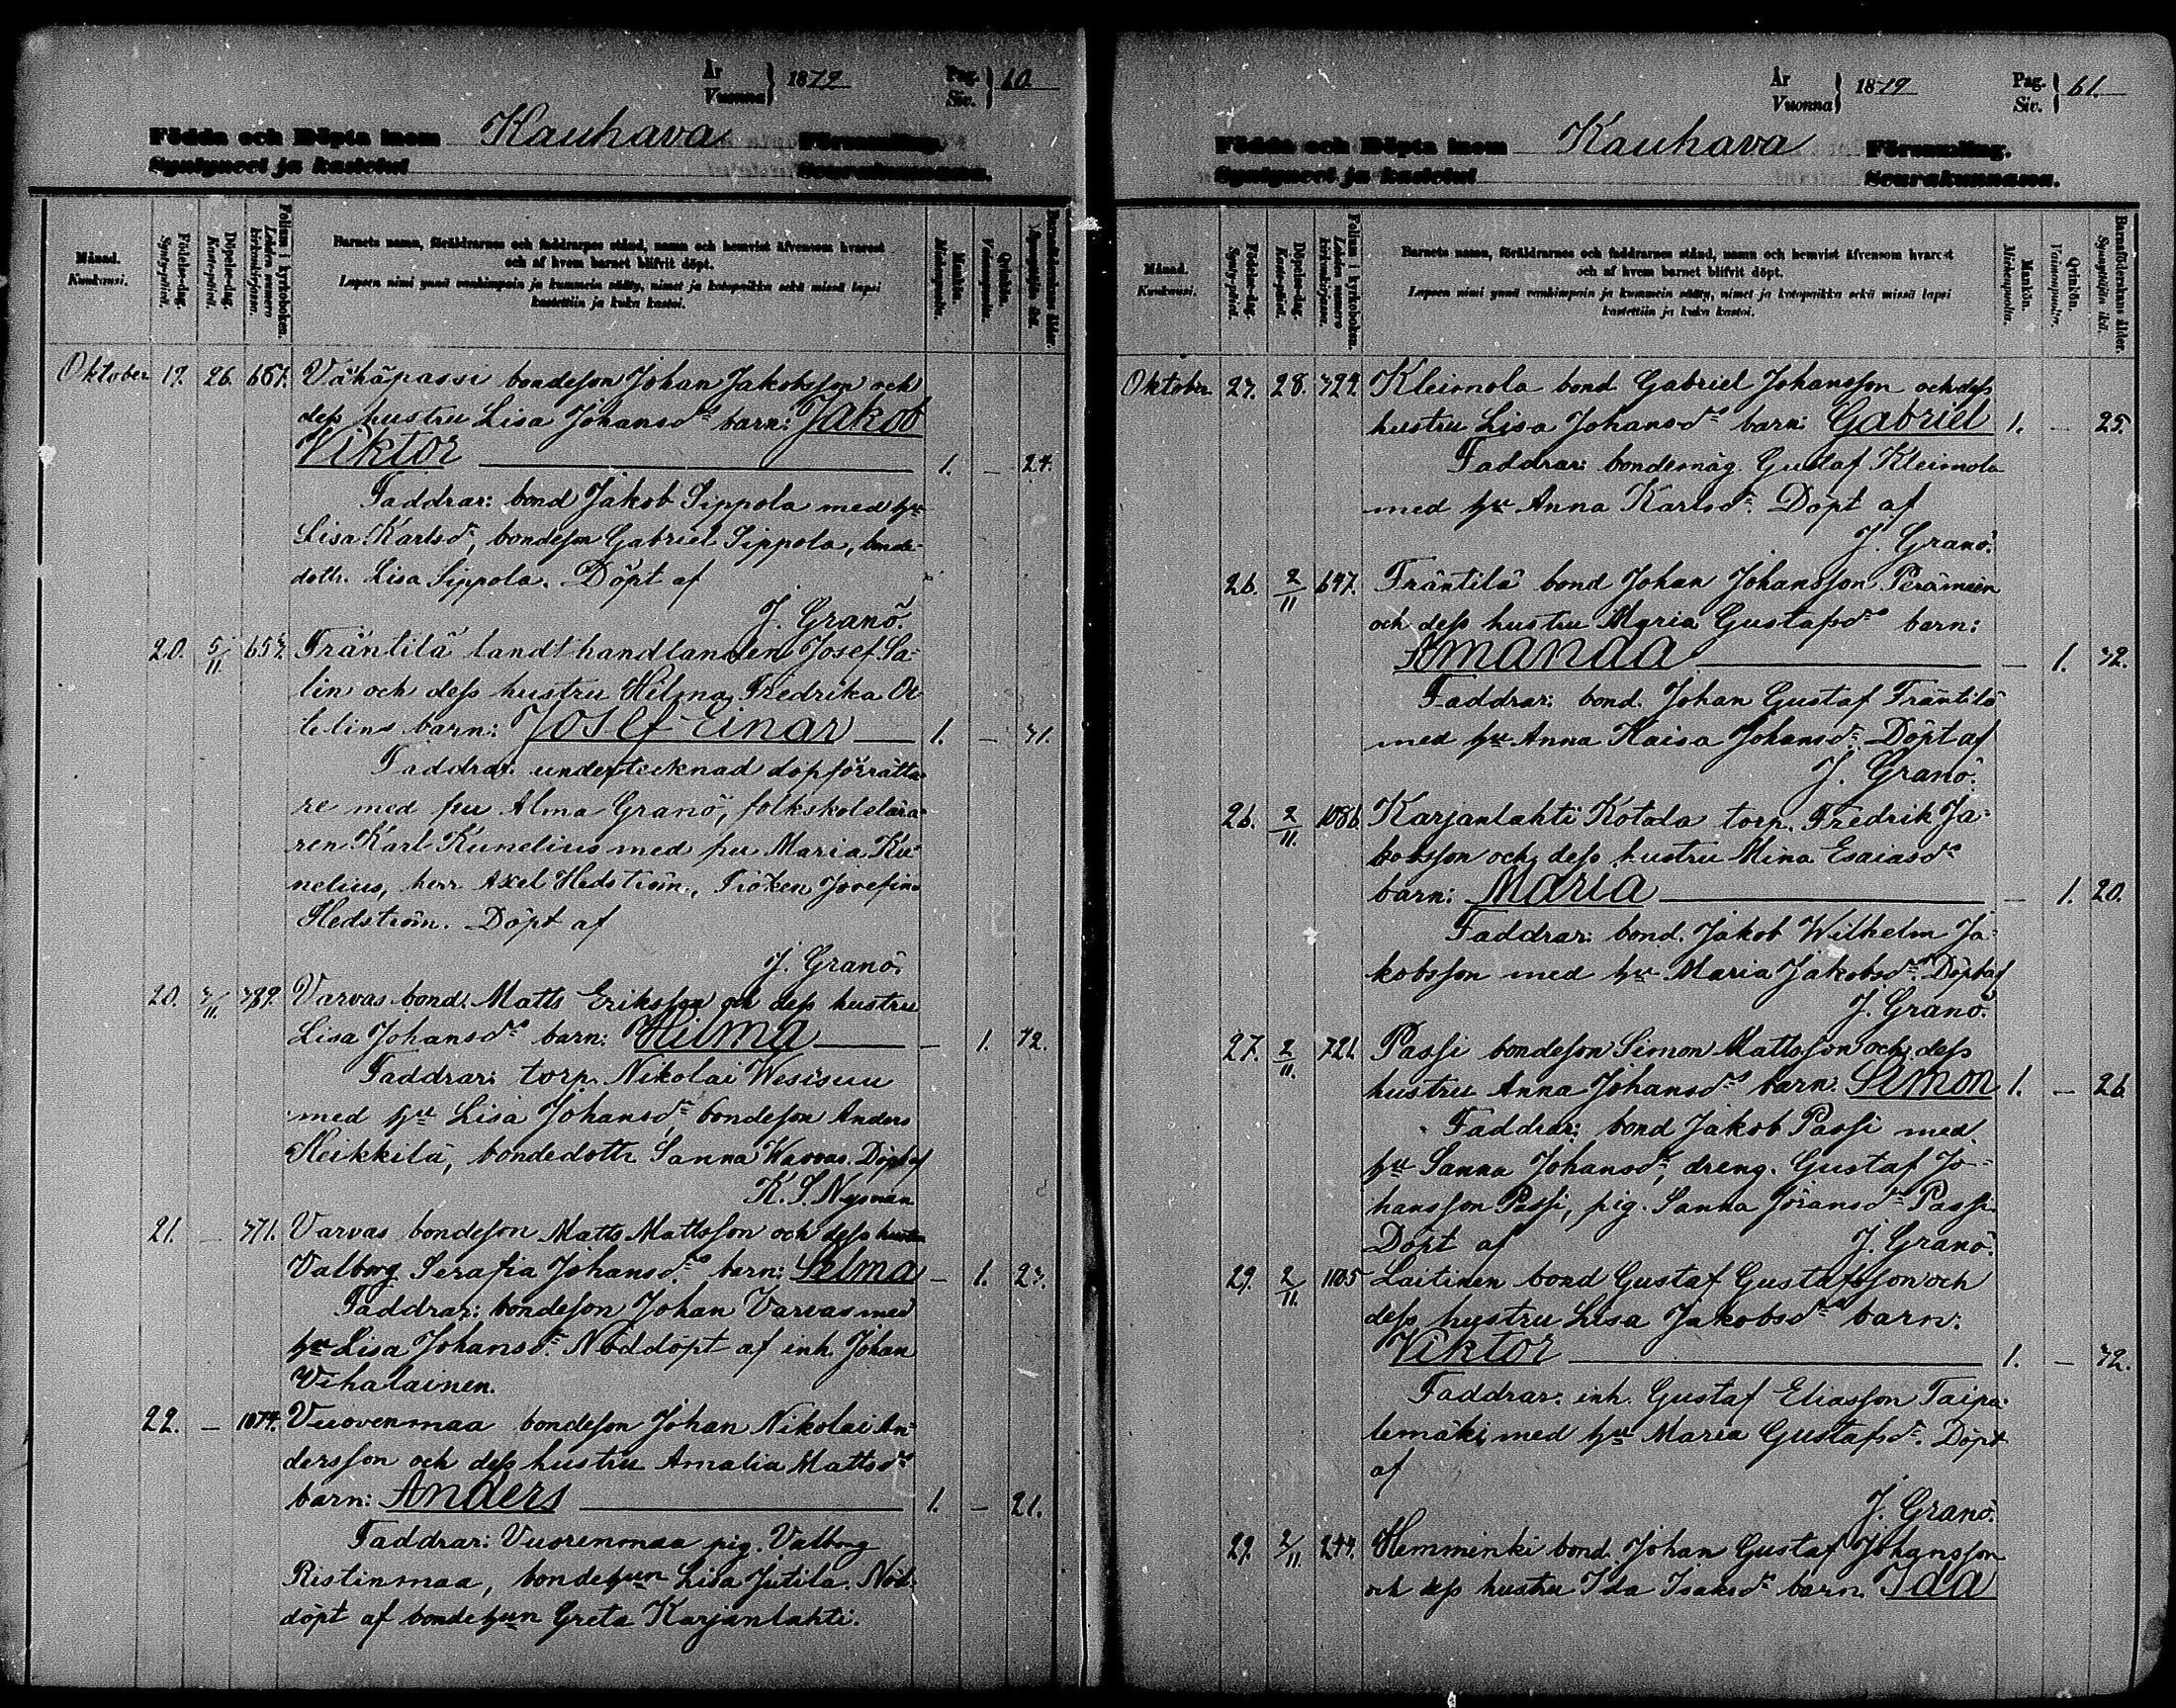 År
Vuonna } 1879 Pag.
Siv. } 60.
Födda och Döpta inom Kauhava Församling.
Syntyneet ja kastetut Seurakunnassa.
Månad.
Kuukausi.
Födelse-dag.
Synty-päivä.
Döpelse-dag.
Kaste-päivä.
Folium i kyrkoboken.
Lehden numero kirkonkirjassa.
Barnets namn, föräldrarnes och faddrarnes stånd, namn och hemvist äfvensom hvarest
och af hvem barnet blifvit döpt.
Lapsen nimi ynnä vanhimpain ja kummein sääty, nimet ja kotopaikka sekä missä lapsi
kastettiin ja kuka kastoi.
Mankön.
Miehenpuolia.
Qvinkön.
Vaimonpuolia.
Barnaföderskans ålder.
Synnyttäjän ikä.
Oktober 17. 26. 667. Vähäpassi bondeson Johan Jakobsson och
dess hustru Lisa Johansds barn: Jakob
Viktor 1. — 24.
Faddrar: bond Jakob Sippola med hu
Lisa Karlsdr, bondeson Gabriel Sippola, bonde-
dottr. Lisa Sippola. Döpt af
J. Granö.
20. 5/11 657. Fräntilä landthandlanden Josef Sa-
lin och dess hustru Hilma Fredrika Ot-
telins barn: Josef Einar 1. — 31.
Faddrar: undertecknad dopförrätta-
re med fru Alma Granö, folkskolelära-
ren Karl Kunelius med fru Maria Ku-
nelius, herr Axel Hedström, Fröken Josefina
Hedström. Döpt af
J. Granö.
20. 7/11 789. Varvas bond. Matts Eriksson och dess hustru
Lisa Johansds barn: Hilma — 1. 42.
Faddrar: torp. Nikolai Wesisuu
med hu Lisa Johansdr, bondeson Anders
Heikkilä, bondedottr Sanna Warvas. Döpt af
K. S. Nyman
21. — 771. Varvas bondeson Matts Mattsson och dess hustru
Valborg Serafia Johansds barn: Selma — 1. 27.
Faddrar: bondeson Johan Varvas med
hu Lisa Johansdr. Nöddöpt af inh. Johan
Vihalainen.
22. — 1074. Vuorenmaa bondeson Johan Nikolai An-
dersson och dess hustru Amalia Mattsds
barn: Anders 1. — 21.
Faddrar: Vuorenmaa pig. Valborg
Ristinmaa, bondehun Lisa Jutila. Nöd-
döpt af bondehun Greta Karjanlahti.
År
Vuonna } 1879 Pag.
Siv. } 61.
Födda och Döpta inom Kauhava Församling.
Syntyneet ja kastetut Seurakunnassa.
Månad.
Kuukausi.
Födelse-dag.
Synty-päivä.
Döpelse-dag.
Kaste-päivä.
Folium i kyrkoboken.
Lehden numero kirkonkirjassa.
Barnets namn, föräldrarnes och faddrarnes stånd, namn och hemvist äfvensom hvarest
och af hvem barnet blifvit döpt.
Lapsen nimi ynnä vanhimpain ja kummein sääty, nimet ja kotopaikka sekä missä lapsi
kastettiin ja kuka kastoi.
Mankön.
Miehenpuolia.
Qvinkön.
Vaimonpuolia.
Barnaföderskans ålder.
Synnyttäjän ikä.
Oktober 27. 28. 329. Kleimola bond Gabriel Johansson och dess
hustru Lisa Johansds barn: Gabriel 1. — 25.
Faddrar: bondemåg. Gustaf Kleimola
med hu Anna Karlsdr. Döpt af
J. Granö.
26. 2/11 647. Fräntilä bond Johan Johansson
och dess hustru Maria Gustafsds barn:
Amanda — 1. 32.
Faddrar: bond. Johan Gustaf Fräntilä
med hu Anna Kaisa Johansdr. Döpt af
J. Granö.
26. 2/11. 1086. Karjanlahti Kotala torp. Fredrik Ja-
kobsson och dess hustru Mina Esaiasds
barn: Maria — 1. 20.
Faddrar: bond. Jakob Wilhelm Ja-
kobsson med hu Maria Jakobsdr. Döpt af
J. Granö.
27. 2/11. 721. Passi bondeson Simon Mattsson och dess
hustru Anna Johansds barn: Simon 1. — 26
Faddrar: bond Jakob Passi med
hu Sanna Johansdr, dreng. Gustaf Jo-
hansson Passi, pig. Sanna Göransdr Passi.
Döpt af J. Granö.
29. 2/11. 1105 Laitinen bond Gustaf Gustafsson och
dess hustru Lisa Jakobsds barn:
Viktor 1. — 42.
Faddrar: inh. Gustaf Eliasson Taipa-
lemäki med hu Maria Gustafsdr. Döpt
af
J. Granö.
29. 2/11. 244. Hemminki bond. Johan Gustaf Johansson
och dess hustru Ida Isaksdr barn: Ida